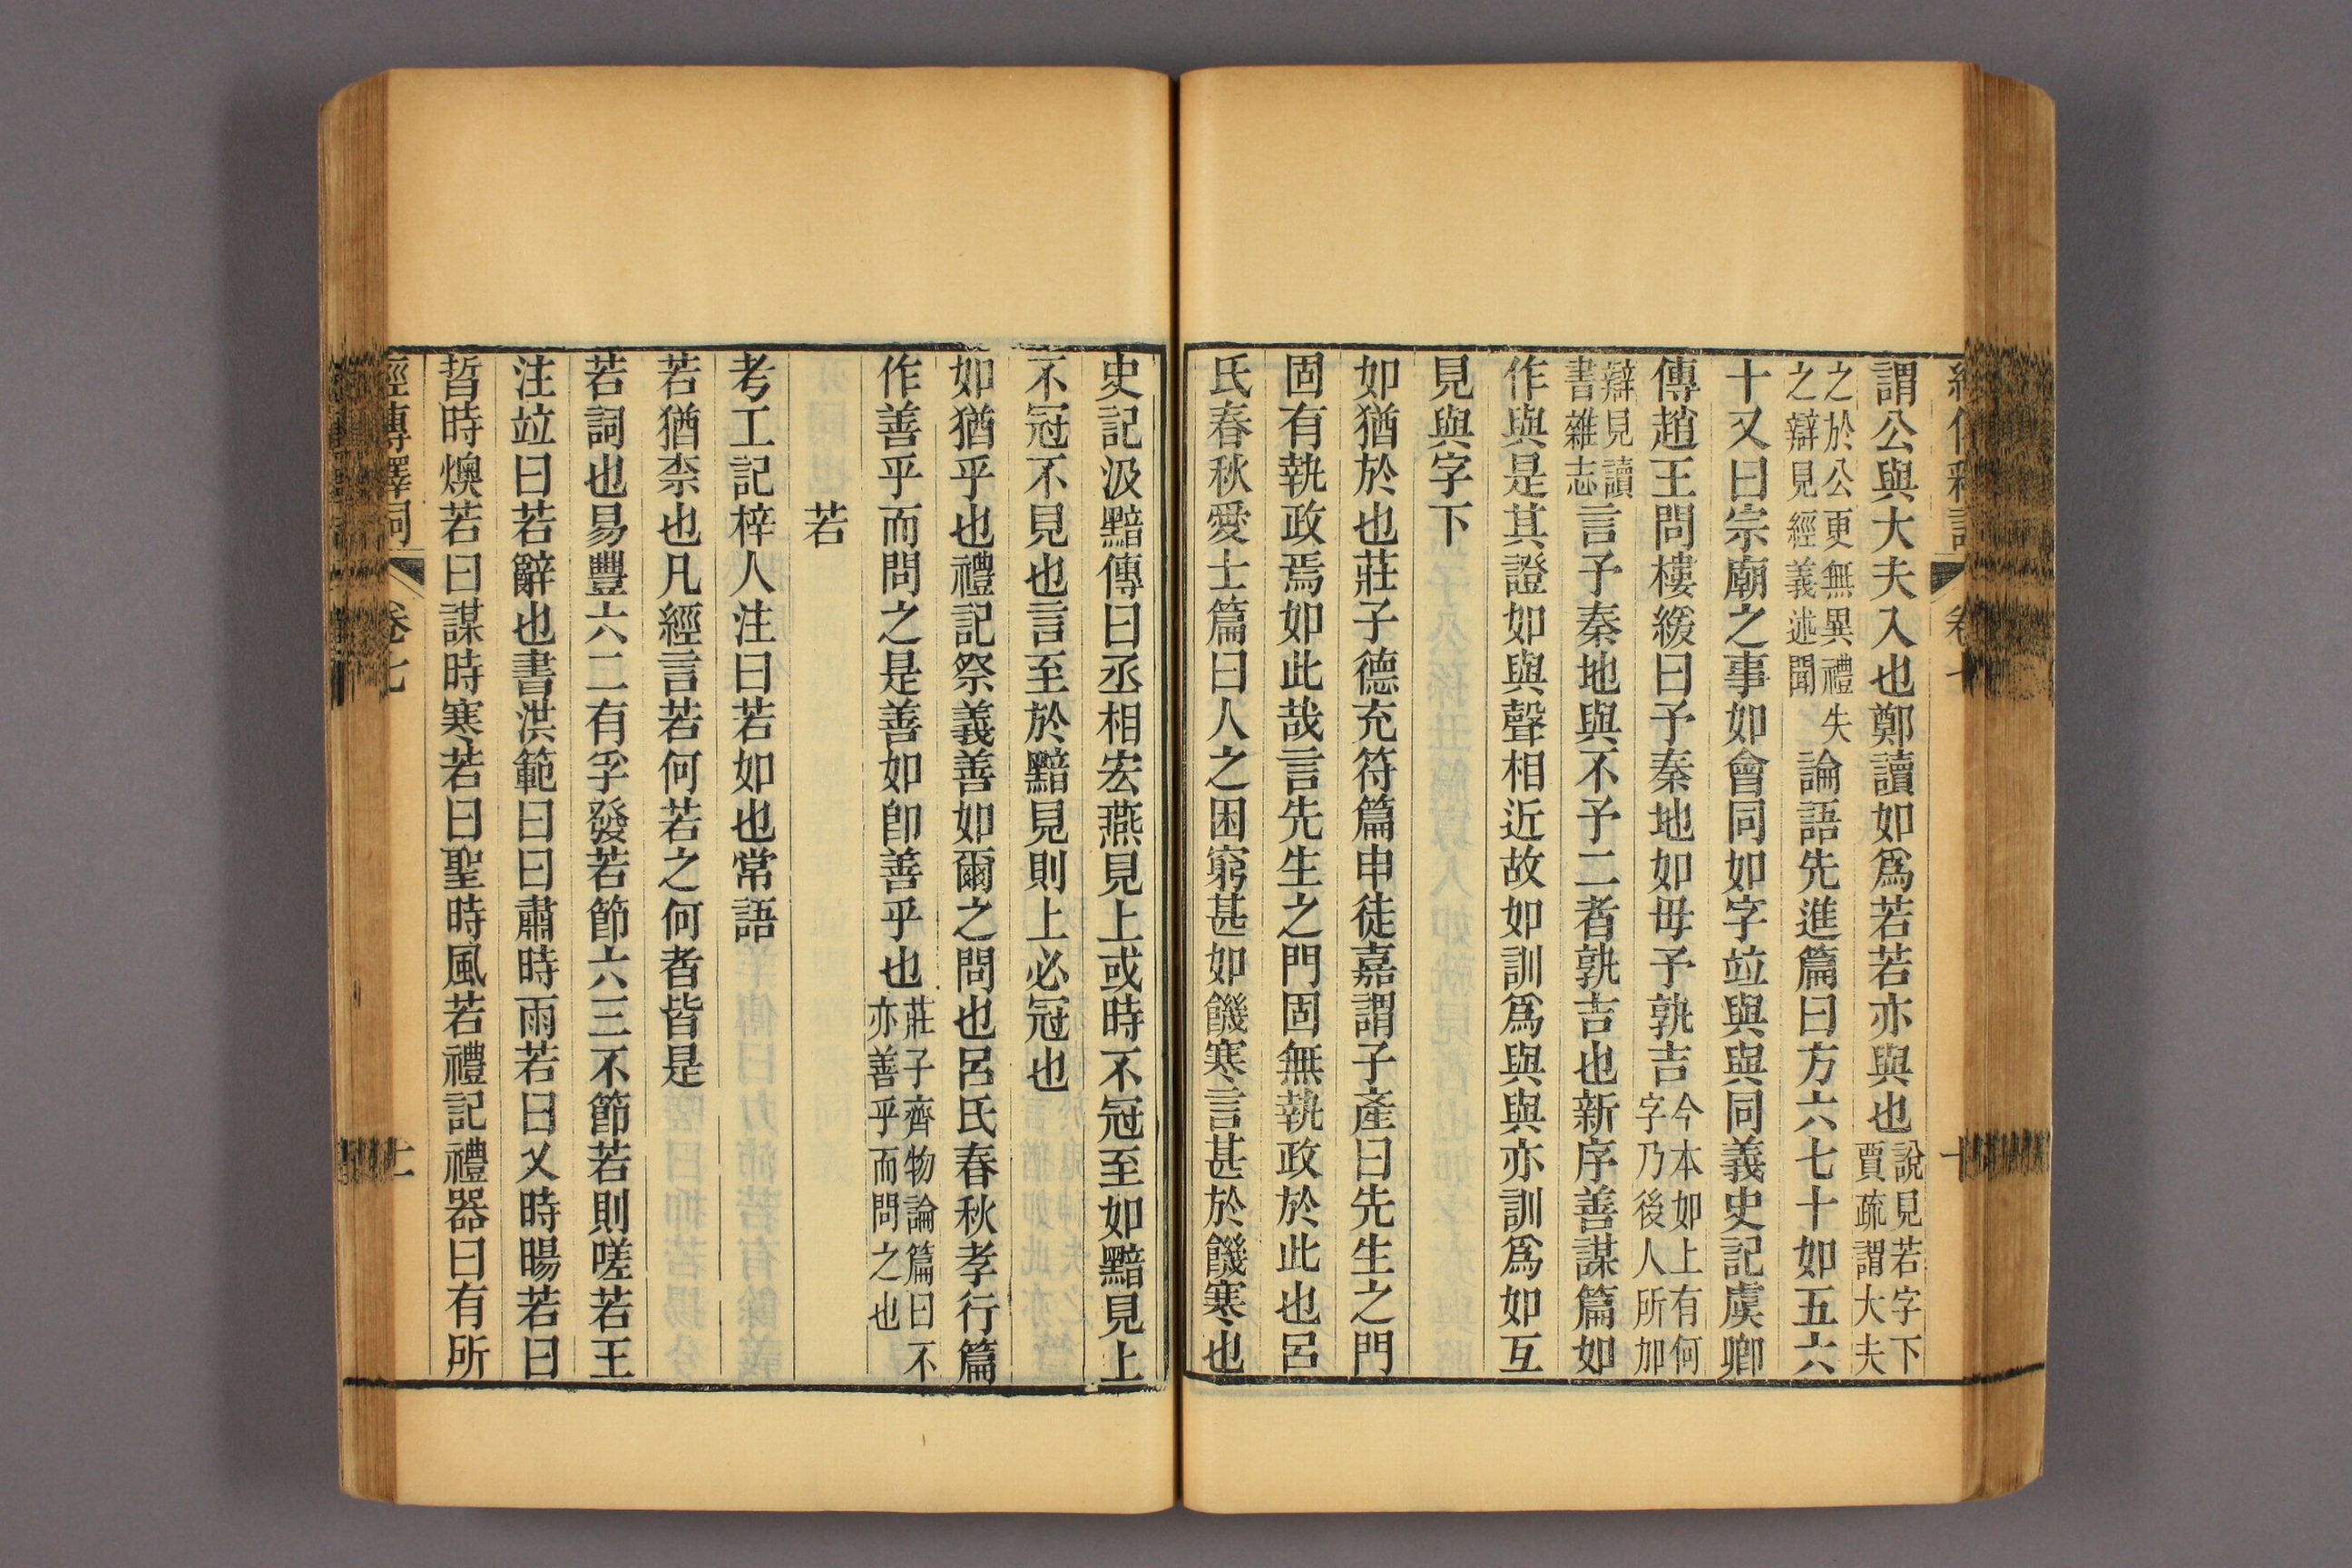 謂公與大夫入也鄭讀如爲若若亦與也說見若字下賈疏謂大夫
之於公更無異禮失之辯見經義述聞論語先進篇曰方六七十如五六
十又曰宗廟之事如會同如字竝與與同義史記虞卿
傳趙王問樓緩曰予秦地如毋予孰吉今本如上有何字乃後人所加
辯見讀書雜志言予秦地與不予二者孰吉也新序善謀篇如
作與是其證如與聲相近故如訓爲與與亦訓爲如互
見與字下
如猶於也莊子德充符篇申徒嘉謂子產曰先生之門
固有執政焉如此哉言先生之門固無執政於此也呂
氏春秋愛士篇曰人之困窮甚如饑寒言甚於饑寒也
史記汲黯傳曰丞相宏燕見上或時不冠至如黯見上
不冠不見也言至於黯見則上必冠也
如猶乎也禮記祭義善如爾之問也呂氏春秋孝行篇
作善乎而問之是善如卽善乎也莊子齊物論篇曰不亦善乎而問之也
若
考工記梓人注曰若如也常語
若猶柰也凡經言若何若之何者皆是
若詞也易豐六二有孚發若節六三不節若則嗟若王
注竝曰若辭也書洪範曰曰肅時雨若曰乂時暘若曰
晢時燠若曰謀時寒若曰聖時風若禮記禮器曰有所
經傳釋詞 卷七